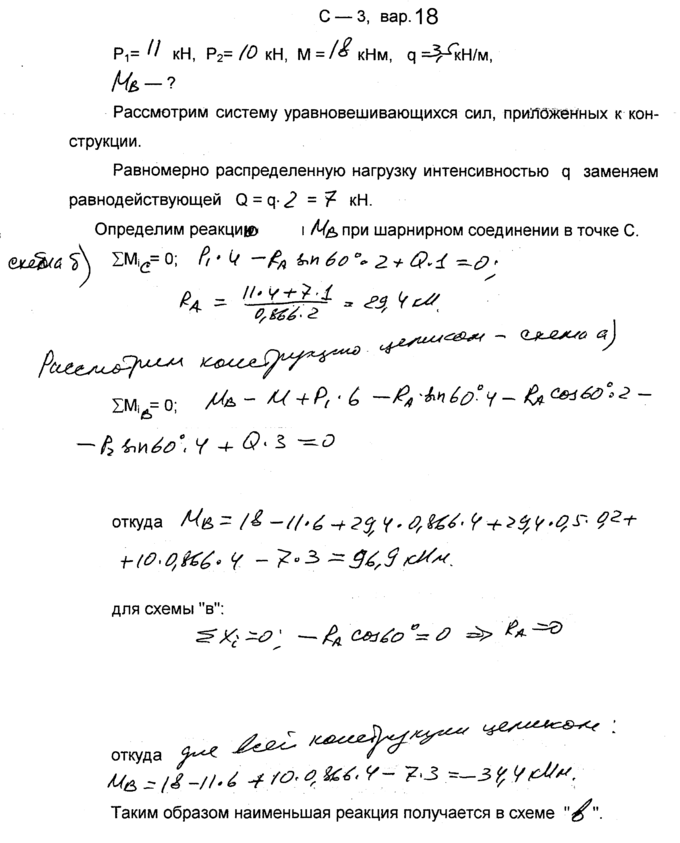 С — 3, вар. 18
P₁= 11 кН, P₂= 10 кН, M = 18 кНм, q =3,5кН/м,
M_B — ?
Рассмотрим систему уравновешивающихся сил, приложенных к кон-
струкции.
Равномерно распределенную нагрузку интенсивностью q заменяем
равнодействующей Q = q· 2 = 7 кН.
Определим реакцию M_B при шарнирном соединении в точке С.
схема б) ΣMi_C= 0; P₁·4 – R_A sin60°·2 + Q·1 = 0;
R_A = (11·4+7·1)/(0,866·2) = 29,4 кН.
Рассмотрим конструкцию целиком – схема а)
ΣMi_B= 0; M_B – M + P₁·6 – R_A·sin60°·4 – R_A cos60°·2 –
– P₂ sin60°·4 + Q·3 = 0
откуда M_B = 18 – 11·6 + 29,4·0,866·4 + 29,4·0,5·0,2+
+10·0,866·4 – 7·3 = 96,9 кНм.
для схемы "в":
ΣXi=0; – R_A cos60° = 0 ⇒ R_A = 0
откуда для всей конструкции целиком:
M_B = 18 – 11·6 + 10·0,866·4 – 7·3 = –34,4 кНм.
Таким образом наименьшая реакция получается в схеме "в".